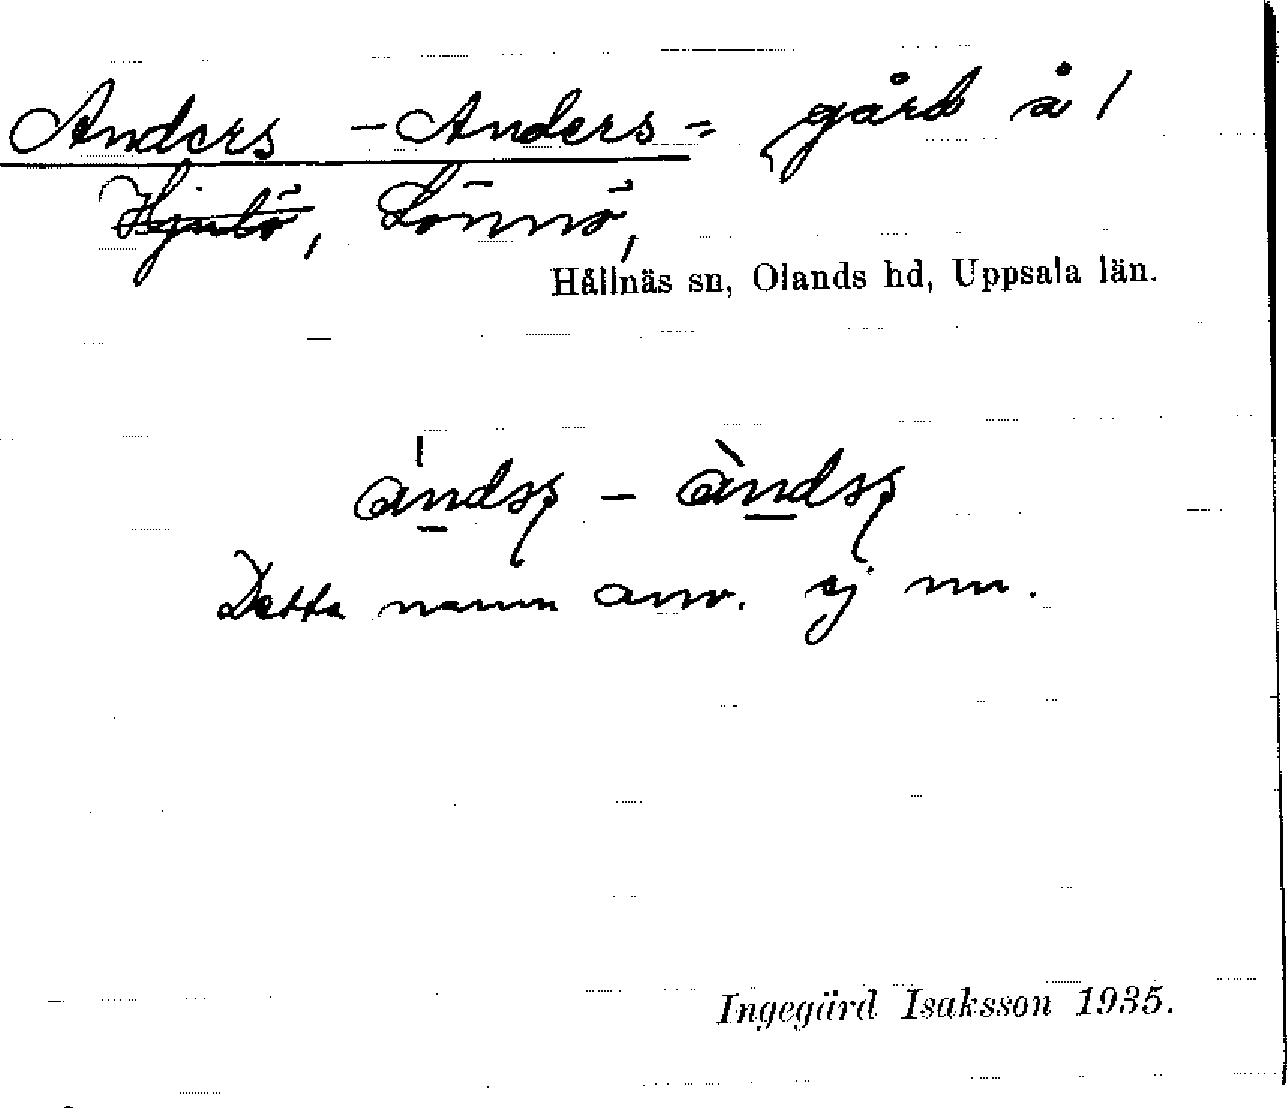 Anders - Anders = gård å 1
Hjulö, Lönnö,
Hållnäs sn, Olands hd, Uppsala län.
ándsş - àndsş
Detta namn anv. ej nu.
Ingegärd Isaksson 1935.